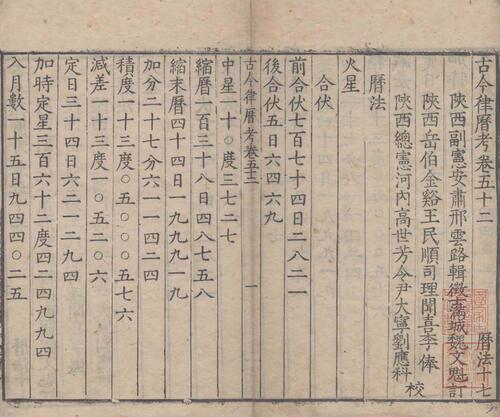 古今律曆考卷五十二　曆法十七
陝西副憲安肅邢雲路輯徵士滿城魏文魁訂
陝西岳伯金谿王民順司理聞喜李俸
陝西總憲河內高世芳令尹大寧劉應科　校
曆法
火星
合伏
前合伏七百七十四日二八二一
後合伏五日六四六九
古今律曆考卷五十二　一
中星一十〇度三七二七
縮曆一百三十八日四八七五八
縮末曆四十四日一九九九一九
加分二十七分六一一四二四
積度一十三度〇五〇〇〇五七六
減差一十三度〇五二〇六
定日三十四日六二一二九四
加時定星三百六十二度四二四九九四
入月數一十五日九四四〇二五